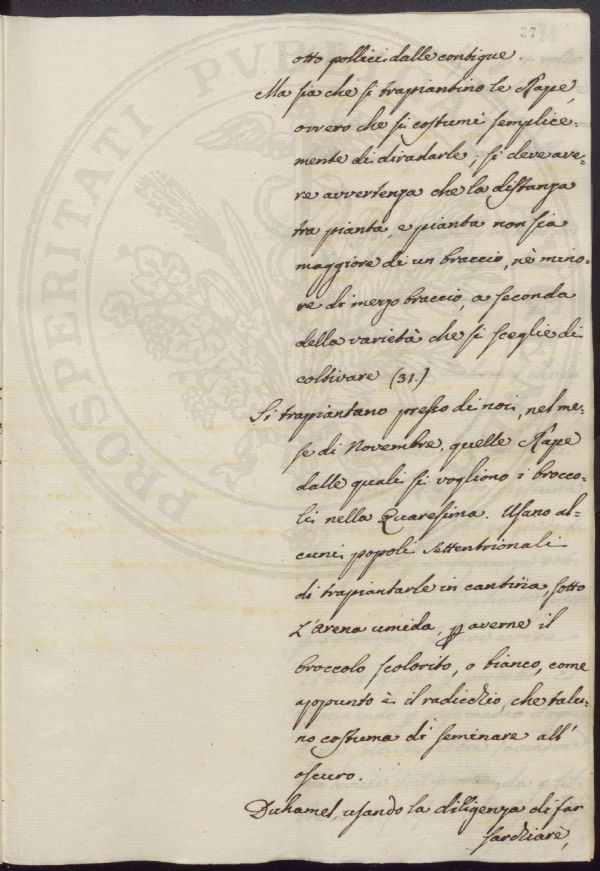 37
otto pollici dalle contigue.
Ma sia che si trapiantino le Rape,
ovvero che si costumi semplice-
mente di diradarle, si deve ave-
re avvertenza che la distanza
tra pianta, e pianta non sia
maggiore di un braccio, nè mino-
re di mezzo braccio, a seconda
della varietà che si sceglie di
coltivare (31.)
Si trapiantano presso di noi, nel me-
se di Novembre, quelle Rape
dalle quali si vogliono i brocco-
li nella Quaresima. Usano al-
cuni popoli Settentrionali
di trapiantarle in cantina, sotto
l'arena umida, p averne il
broccolo scolorito, o bianco, come
appunto è il radicchio, che talu-
no costuma di seminare all'
oscuro.
Duhamel, usando la diligenza di far
sarchiare,
PROSPERITATI PUBLICAE